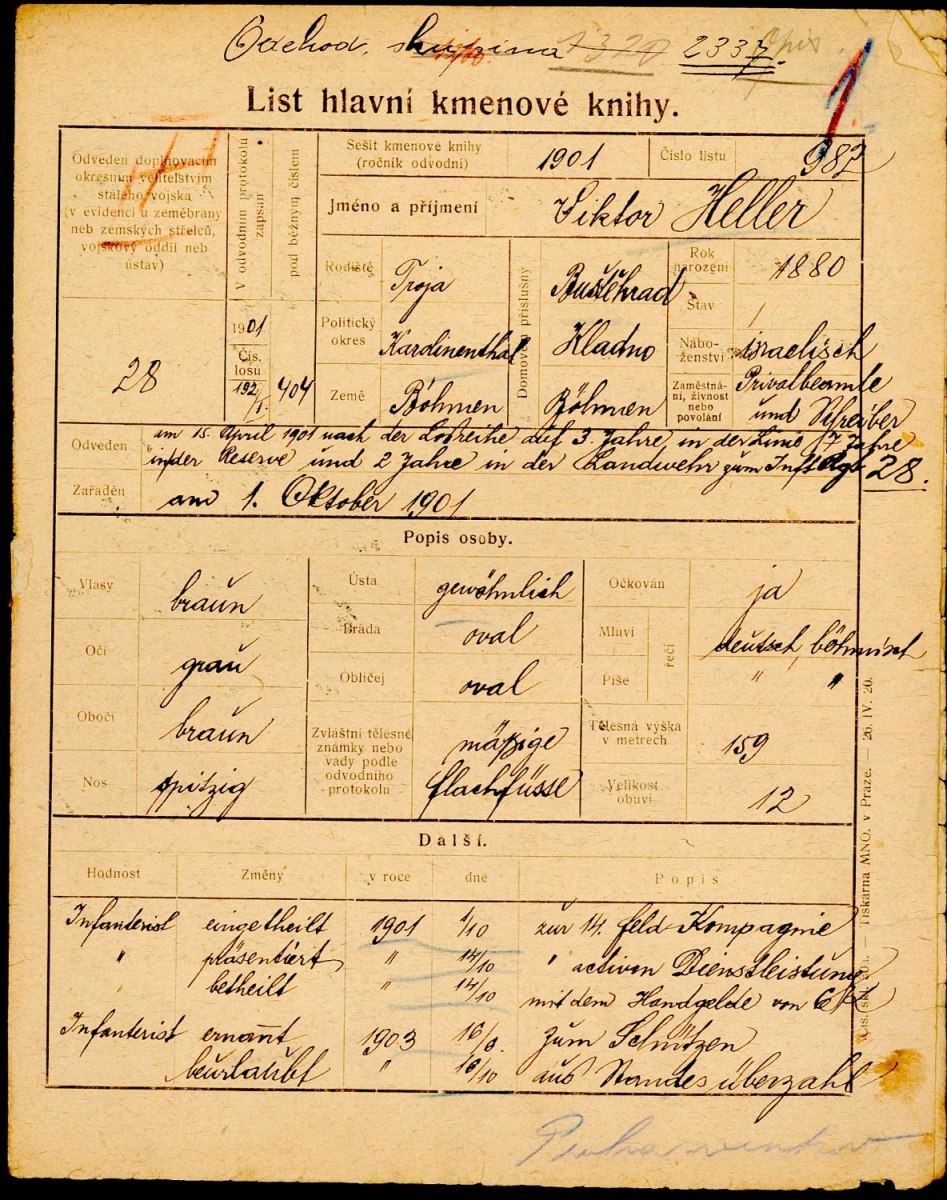 Odchod. skupina 1320 2337. opis.
1.
List hlavní kmenové knihy.
Odveden doplňovacím
okresním velitelstvím
stálého vojska
(v evidenci u zeměbrany
neb zemských střelců,
vojskový oddíl neb
ústav)
28
v odvodním protokolu
zapsán
pod běžným číslem
1901
Čís.
losu
192/I.
404
Sešit kmenové knihy
(ročník odvodní)
1901
Číslo listu
982
Jméno a příjmení
Viktor Heller
Rodiště
Troja
Politický
okres
Karolinenthal
Země
Böhmen
Domovem příslušný
Buštěhrad
Kladno
Böhmen
Rok
narození
1880
Stav
/
Nábo-
ženství
israelisch
Zaměstná-
ní, živnost
nebo
povolání
Privatbeamte
und Schreiber
Odveden
am 15. April 1901 nach der Losreihe auf 3. Jahre, in der Linie, 7 Jahre
in der Reserve und 2 Jahre in der Landwehr zum Inft Rgt 28.
Zařaděn
am 1. Oktober 1901
Popis osoby.
Vlasy
braun
Oči
grau
Obočí
braun
Nos
spitzig
Ústa
gewöhnlich
Brada
oval
Obličej
oval
Zvláštní tělesné
známky nebo
vady podle
odvodního
protokolu
mässige
flachfüsse
Očkován
ja
Mluví
deutsch, böhmisch
Píše
" "
řečí
Tělesná výška
v metrech
159
Velikost
obuvi
12
Další.
Hodnost Změny v roce dne Popis
Infanterist eingetheilt 1901 1/10 zur 14. feld Kompagnie
" präsentiert " 14/10 " activen Dienstleistung
betheilt " 14/10 mit dem Handgelde von 6 K
Infanterist ernannt 1903 16/8. zum Schützen
beurlaubt " 16/10 aus Standesüberzahl
Tiskárna MNO. v Praze. — 20. IV. 20.